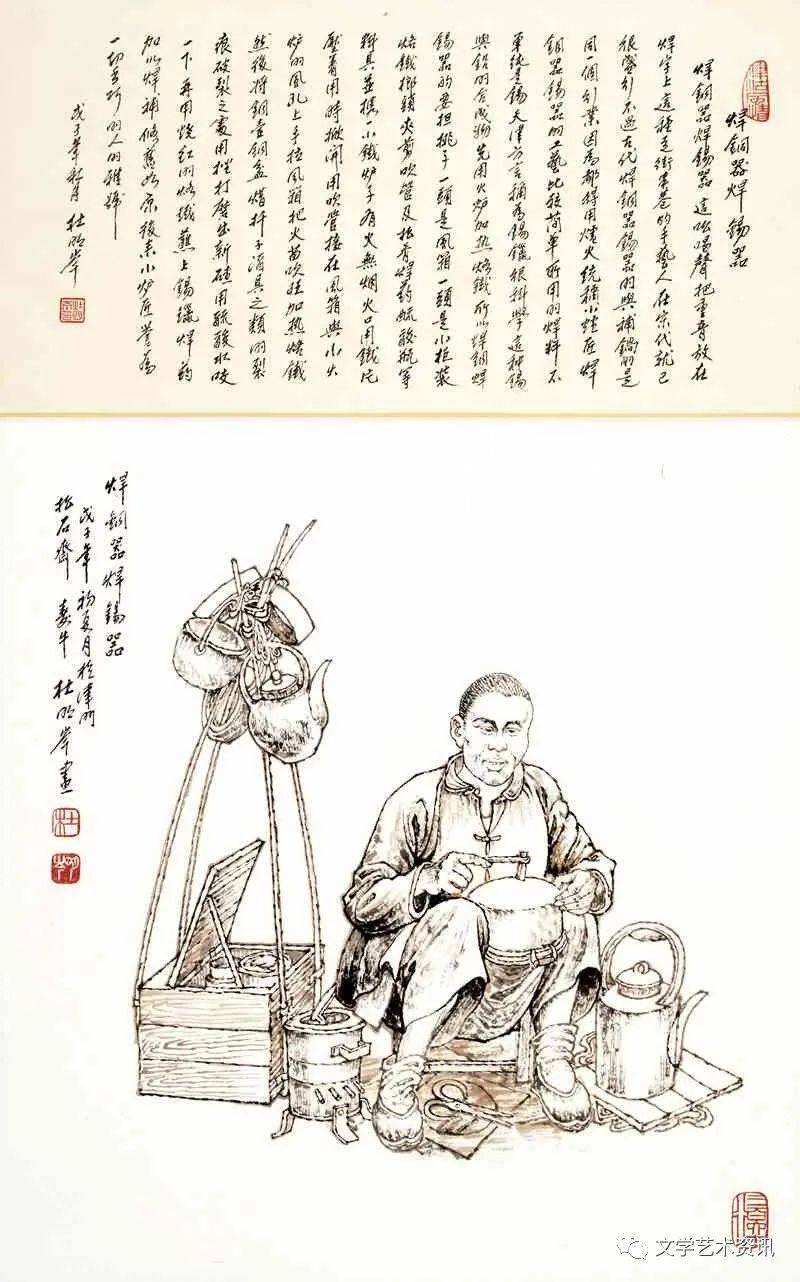 焊銅器焊錫器
焊銅器焊錫器這吆喝聲把重音放在
焊字上這種走街串巷的手藝人在宋代就已
很盛行不過古代焊銅器錫器的與補鍋的是
同一個行業因為都得用爐火統稱小爐匠焊
銅器錫器的工藝比較簡單所用的焊料不
單純是錫天津方言稱為錫鑞根科學這種錫
與鉛的合成物先用火炉加热烙鐵所以焊銅焊
錫器的要担挑子一頭是風箱一頭是小柜裝
烙鐵榔頭夾剪吹管及松香焊药硫酸瓶等
料具並携一小鐵炉子有火無烟火口用鐵片
壓着用時掀開用吹管接在風箱與小火
炉的風孔上手拉風箱把火苗吹旺加热烙鐵
然後将銅壺銅盆燈扦子酒具之類的裂
痕破裂之處用挫打磨出新碴用硫酸水咬
一下再用烧紅的烙鐵蘸上錫鑞焊药
加以焊補修舊如原後来小炉匠誉為
一切手巧的人的雅號
戊子年初夏月 杜明岑
焊銅器焊錫器
戊子年初夏月於津門
松石齋 春牛 杜明岑畫
杜
文学艺术资讯